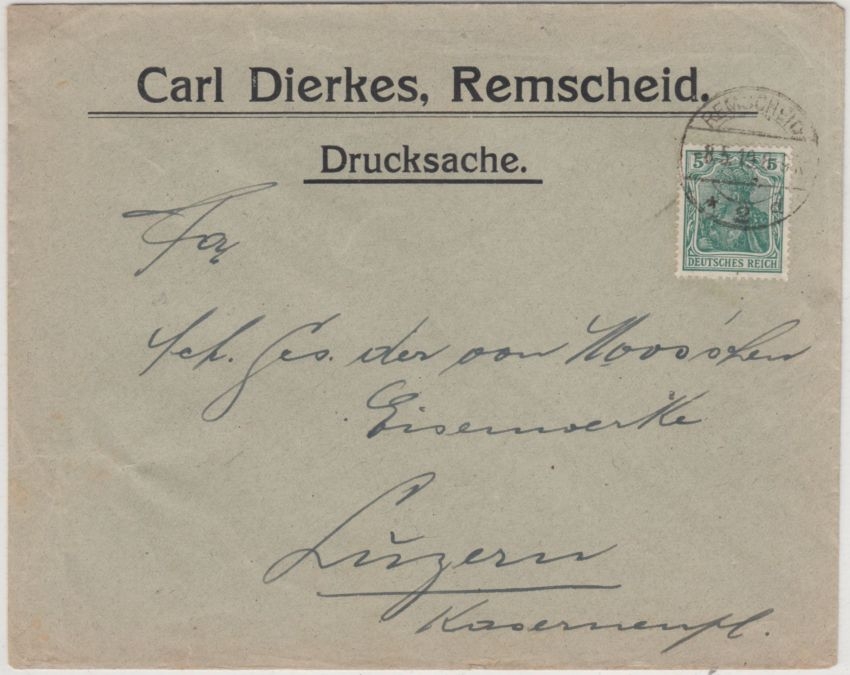 Carl Dierkes, Remscheid.
Drucksache.
REMSCHEID
8.5.19.8
* 2 d
5 5
DEUTSCHES REICH
Fa
Sch. Ges. der von Moos'schen
Eisenwerke
Luzern
Kasernenpl.